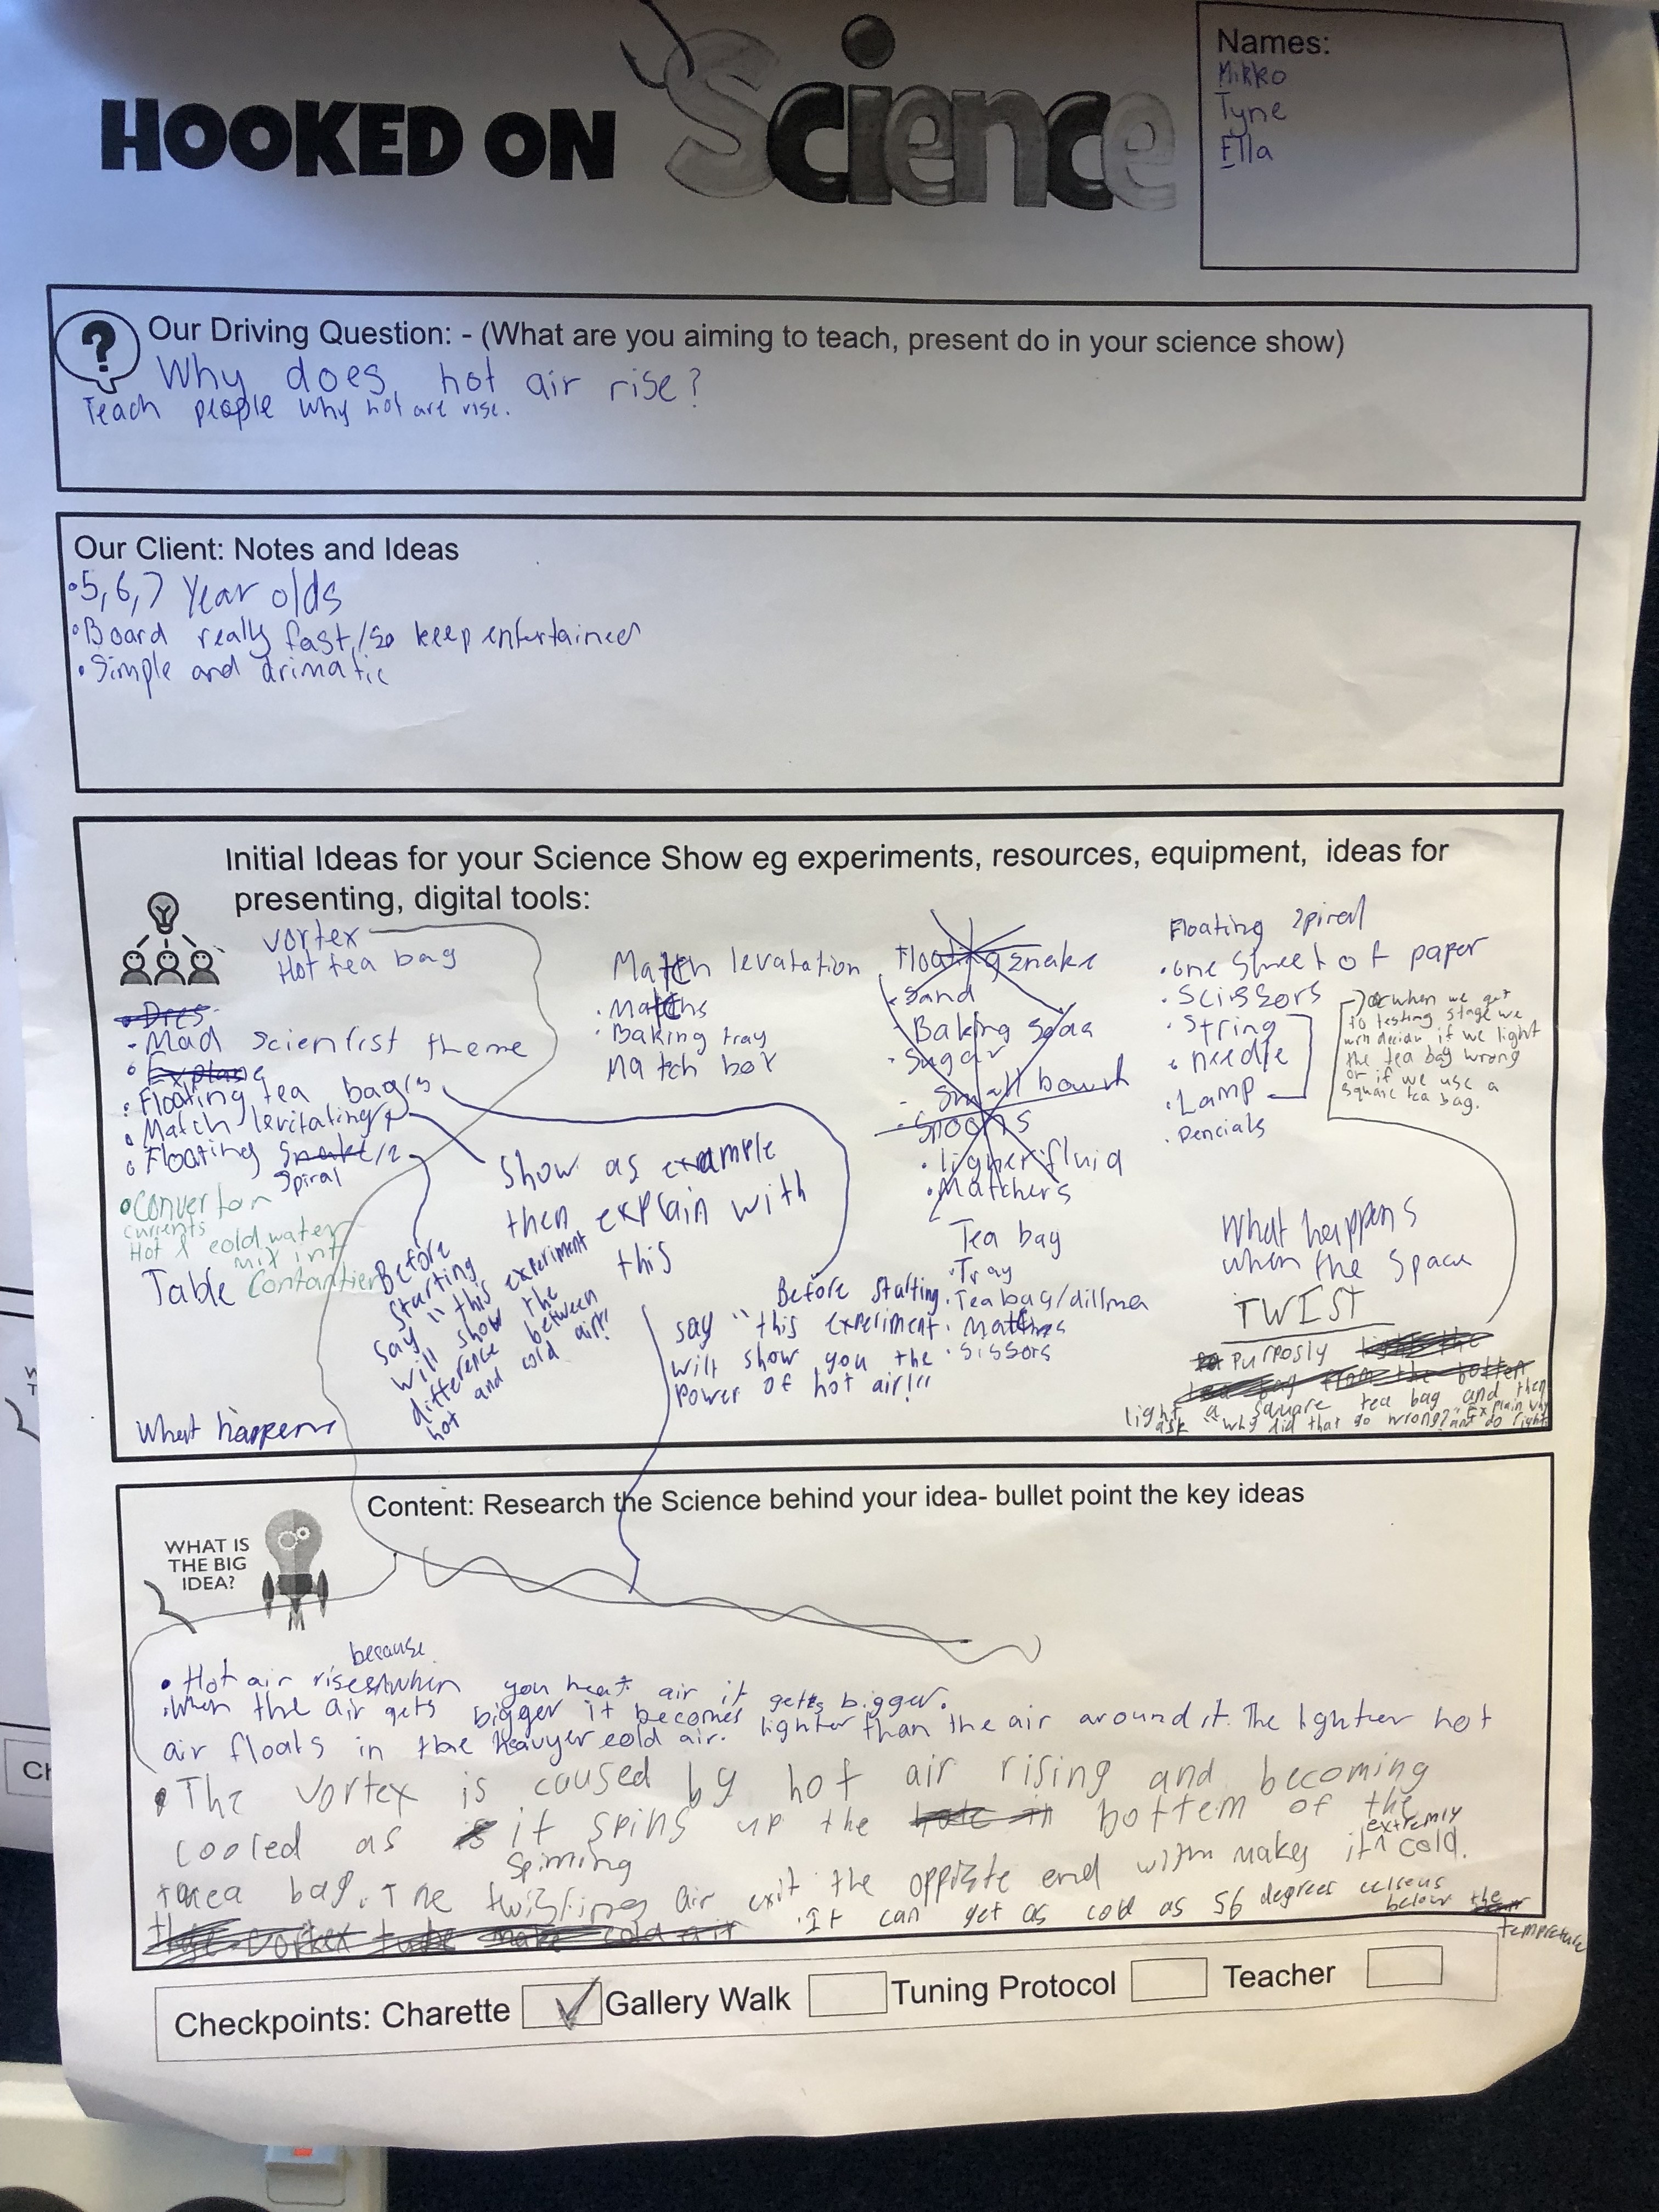 HOOKED ON Science
Names:
Mikko
Tyne
Ella
Our Driving Question: - (What are you aiming to teach, present do in your science show)
Why does hot air rise?
Teach people why hot are rise.
Our Client: Notes and Ideas
•5,6,7 Year olds
•Board really fast/so keep entertained
•Simple and drimatic
Initial Ideas for your Science Show eg experiments, resources, equipment, ideas for
presenting, digital tools:
vortex
Hot tea bag
• Dres
- Mad scientist theme
• Explane
• Floating tea bag/s
• Match levitating
• Floating Snake/2
Spiral
•Convertor
currents
Hot & cold water
mix int
Table Contantier
What happens
Match levatation
• Matchs
• Baking tray
Match box
Show as example
then explain with
this
Before
starting
say "this experiment
will show the
difference between
hot and cold air!"
Before starting
say "this experiment
will show you the
Power of hot air!"
Floating snake
- Sand
- Baking soda
- Sugar
- Small
- Spoons
• ligher fluid
• Matchers
Tea bag
• Tray
• Tea bag/dillma
• Matches
• Sissors
Floating spiral
• one Sheet of paper
• Scissors
• String
• needle
• Lamp
• Pencials
when we get
to testing stage we
will decide if we light
the tea bag wrong
or if we use a
square tea bag.
What happens
when the Space
TWIST
Purposly
light a square tea bag and then
ask "why did that go wrong?" Explain why
and do right
Content: Research the Science behind your idea- bullet point the key ideas
WHAT IS
THE BIG
IDEA?
because
• Hot air rises when you heat air it gets bigger.
• When the air gets bigger it becomes lighter than the air around it. The lighter hot
air floats in the heavyer cold air.
• The vortex is caused by hot air rising and becoming
cooled as it spins up the bottem of the
extremly
tea bag. The spinning twisting air exit the oppiste end makes it cold.
• It can get as cold as 56 degrees celseus
below the
tempreture
Checkpoints: Charette Gallery Walk Tuning Protocol Teacher